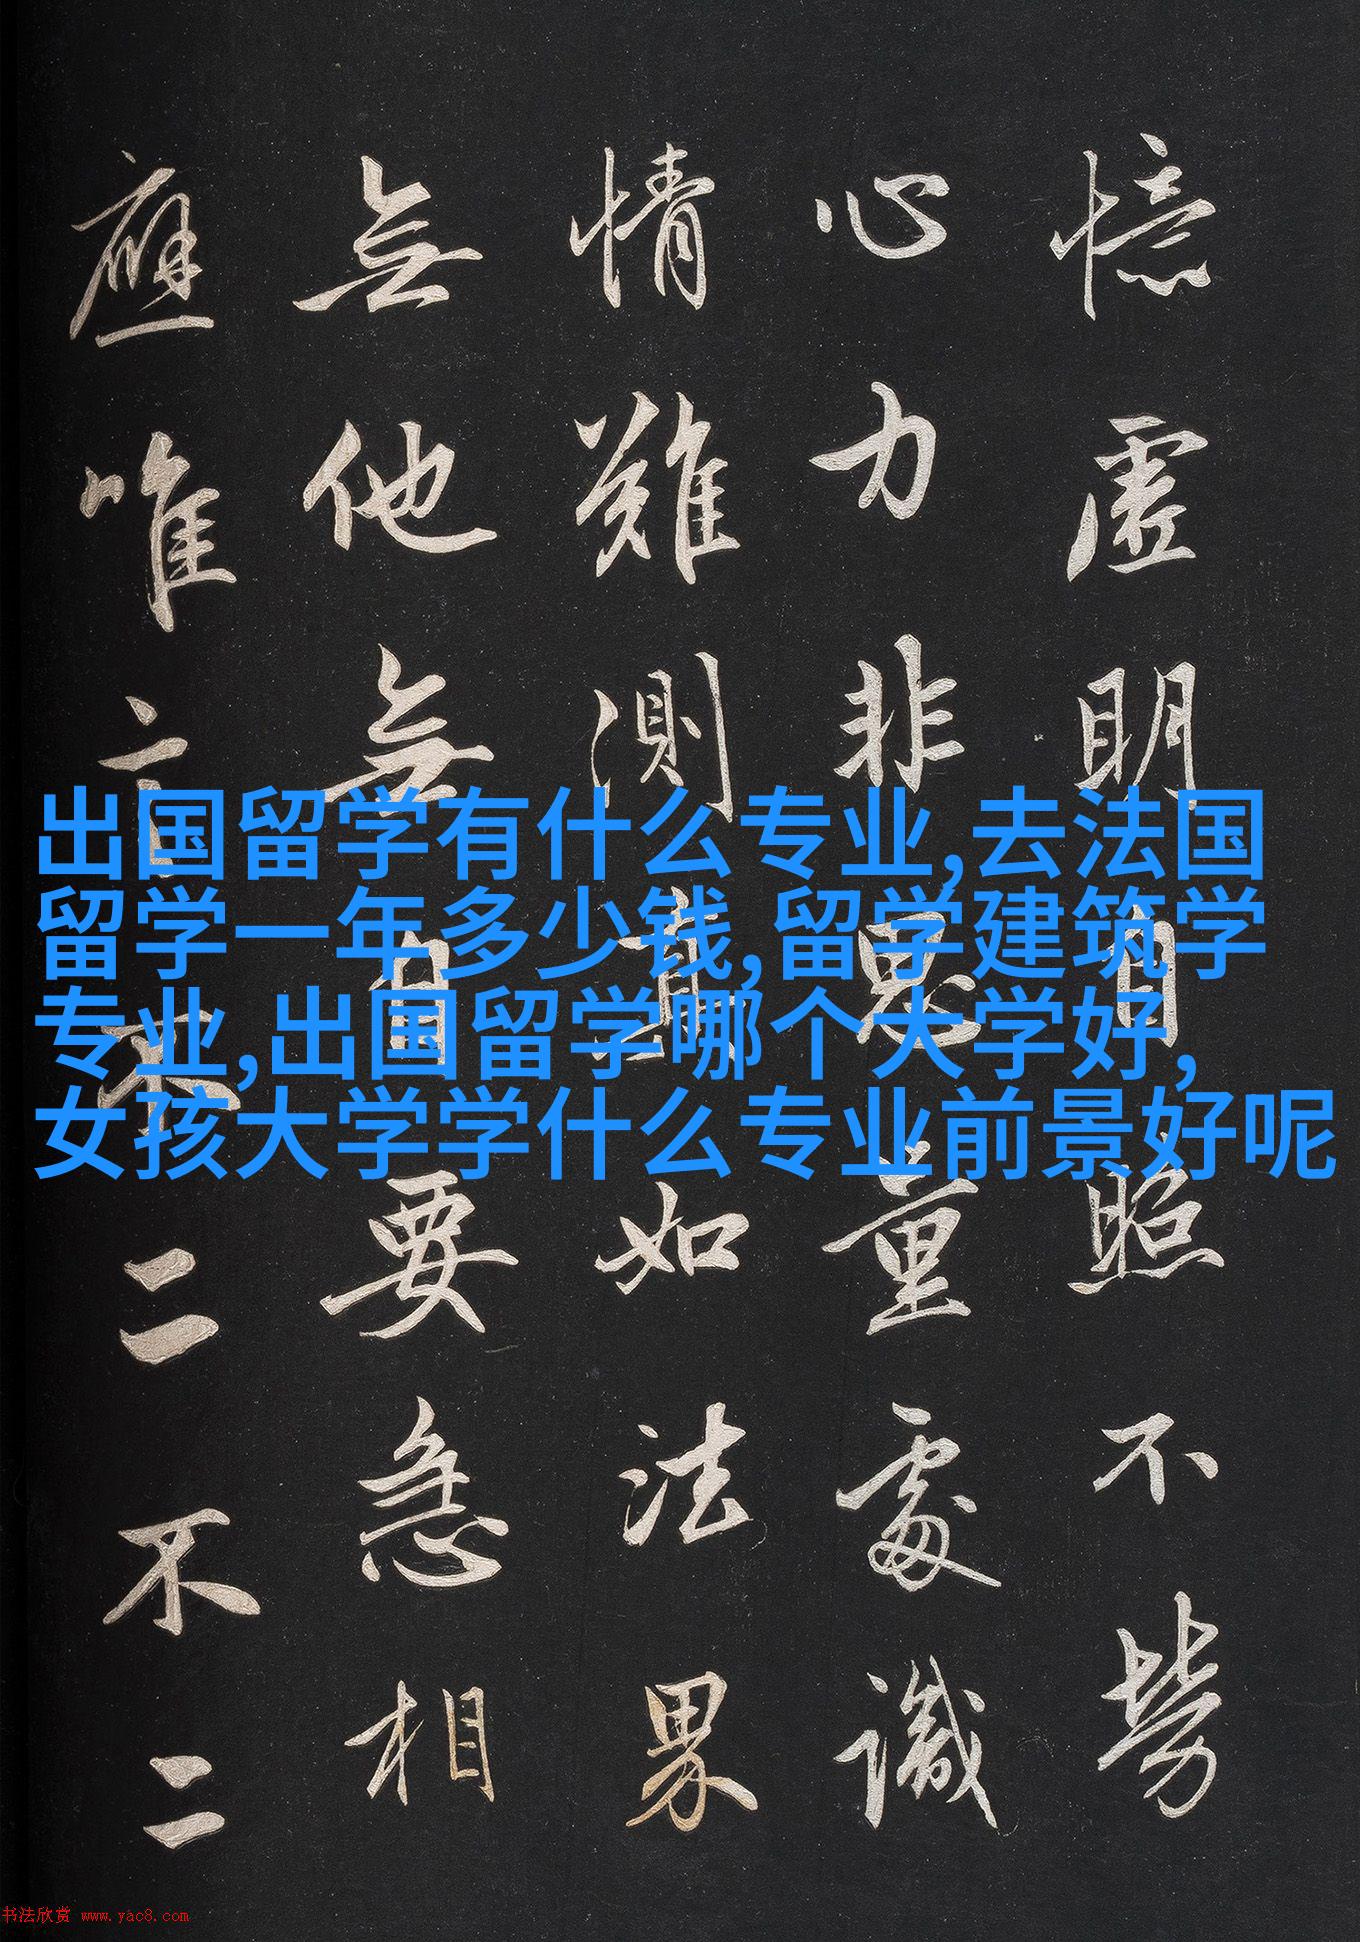 憶虛明自照不勞
心力非思量處識
情難測真如法界
無他無自要急相
應唯言不二不二
出国留学有什么专业,去法国
留学一年多少钱,留学建筑学
专业,出国留学哪个大学好,
女孩大学学什么专业前景好呢
书法欣赏 www.yac8.com